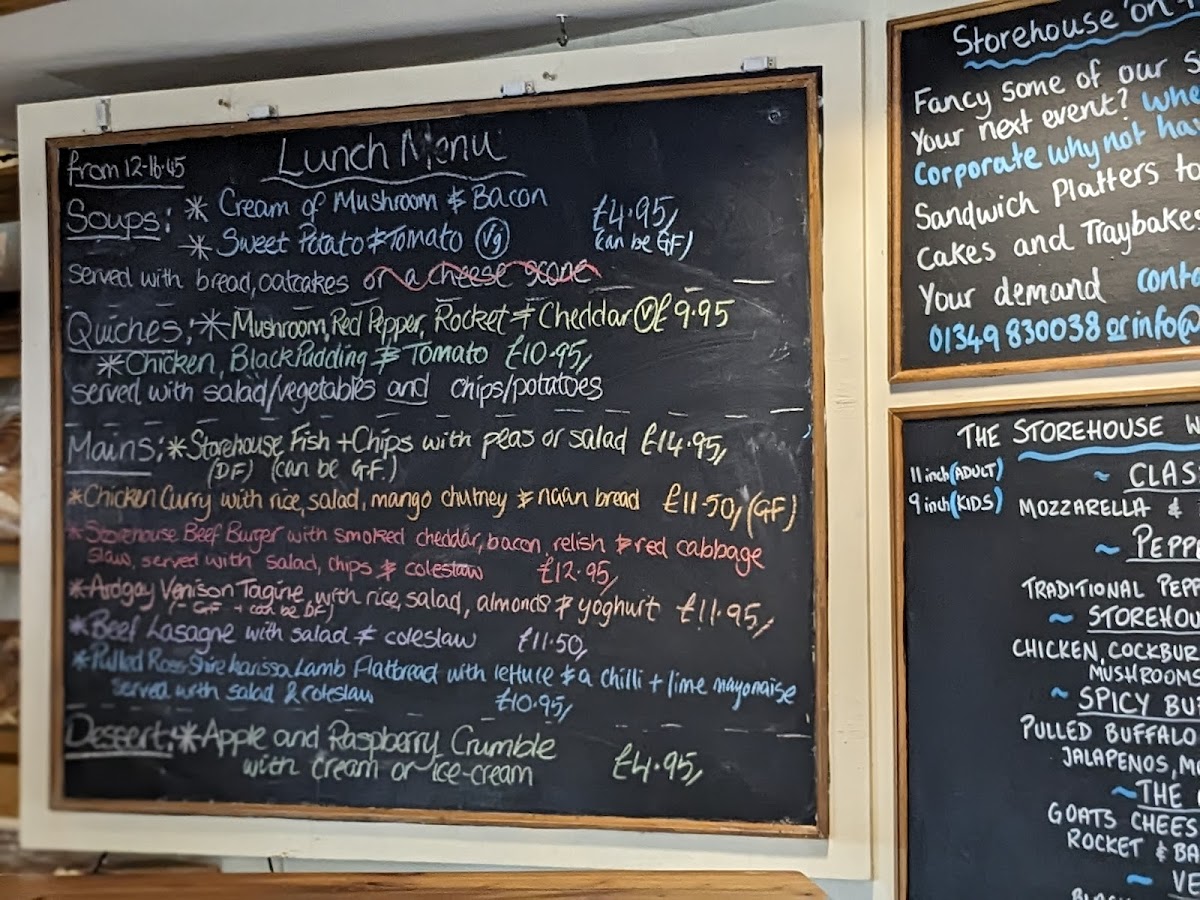 Lunch Menu
from 12-16.45
Soups: * Cream of Mushroom & Bacon
* Sweet Potato & Tomato (Vg) £4.95,
(can be GF)
served with bread, oatcakes or a cheese scone
Quiches: * Mushroom, Red Pepper, Rocket & Cheddar (V) £9.95
* Chicken, Black Pudding & Tomato £10.95,
served with salad/vegetables and chips/potatoes
Mains: * Storehouse Fish + Chips with peas or salad £14.95,
(DF) (can be G.F.)
* Chicken Curry with rice, salad, mango chutney & naan bread £11.50, (GF)
* Storehouse Beef Burger with smoked cheddar, bacon, relish & red cabbage
slaw, served with salad, chips & coleslaw £12.95,
* Ardgay Venison Tagine, with rice, salad, almonds & yoghurt £11.95,
(- GF + can be DF)
* Beef Lasagne with salad & coleslaw £11.50,
* Pulled Ross-Shire harissa Lamb Flatbread with lettuce & a chilli + lime mayonaise
served with salad & coleslaw £10.95,
Dessert: * Apple and Raspberry Crumble
with cream or ice-cream £4.95,
Storehouse on
Fancy some of our
Your next event?
Corporate why not
Sandwich Platters to
Cakes and Traybakes
Your demand
01349 830038 or info@
THE STOREHOUSE
11 inch (ADULT)
9 inch (KIDS)
~ CLAS
MOZZARELLA &
~ PEPP
TRADITIONAL PEPP
~ STOREHOU
CHICKEN, COCKBUR
MUSHROOMS
~ SPICY BU
PULLED BUFFALO
JALAPENOS, MO
~ THE
GOATS CHEES
ROCKET & BA
~ VE